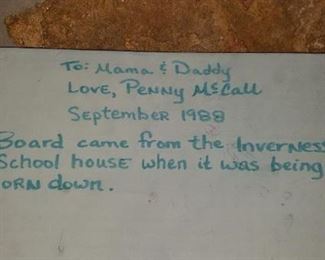 To: Mama & Daddy
Love, Penny McCall
September 1988
Board came from the Inverness
School house when it was being
torn down.